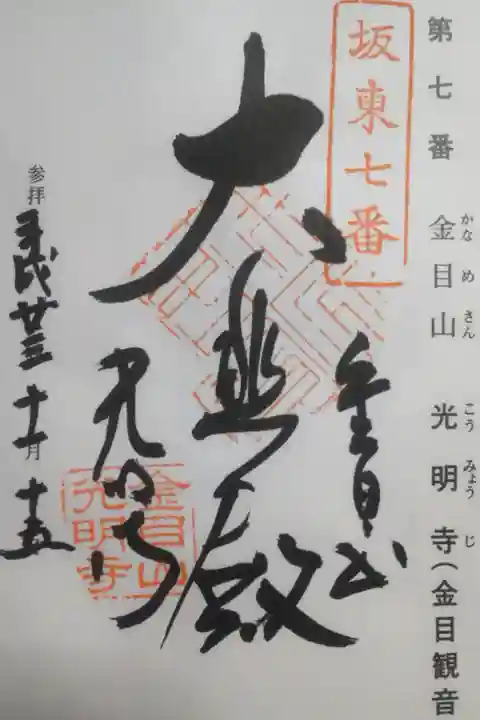 第七番 金目山 光明寺(金目観音
かなめさん こうみょうじ
坂東七番
金目山
大悲殿
光明寺
金目山
光明寺
参拝 平成廿三 十一月 十五